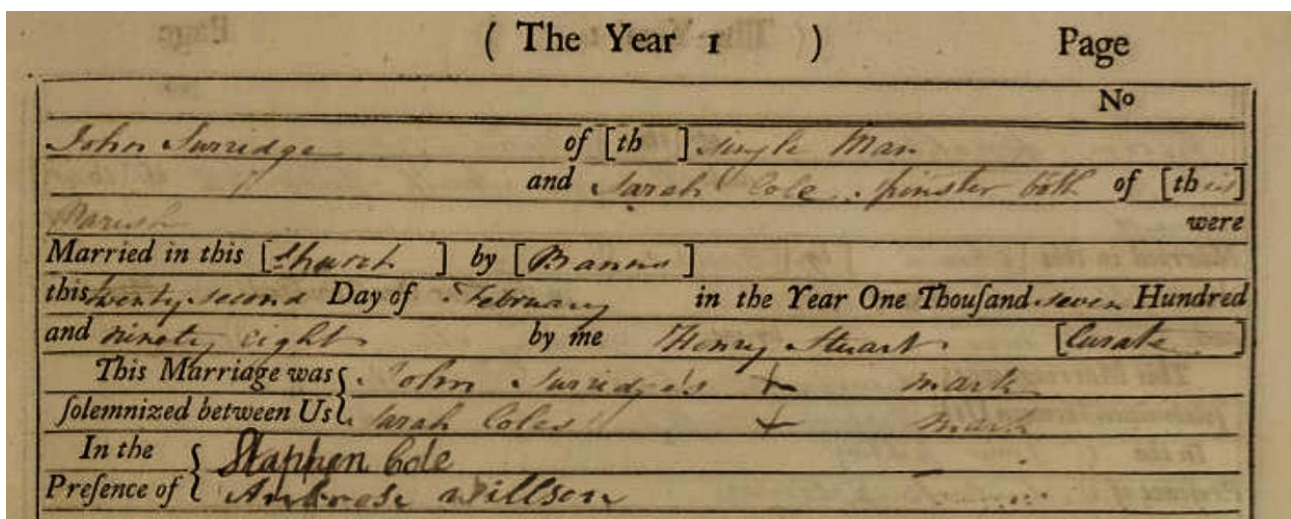 ( The Year 1 ) Page
No
John Surridge of [th ] single Man
and Sarah Cole spinster both of [this]
Parish were
Married in this [Church ] by [Banns ]
this twenty second Day of February in the Year One Thouſand seven Hundred
and ninety eight by me Henry Stuart [Curate ]
This Marriage was { John Surridge's + mark
ſolemnized between Us { Sarah Coles + mark
In the { Stapphen Cole
Preſence of { Ambrose Willson